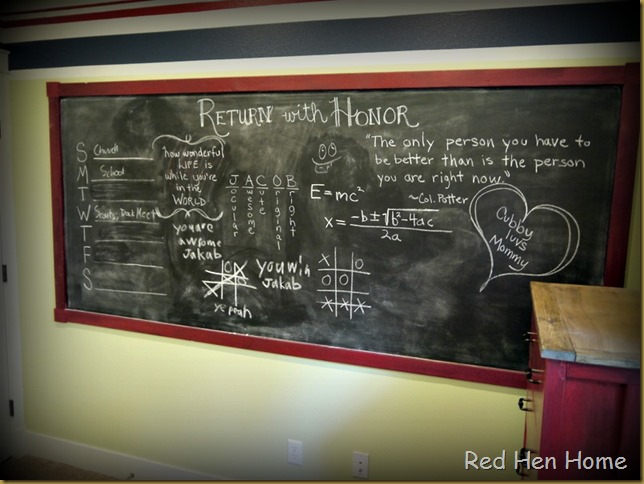 RETURN with HONOR
S Church
M School
T
W Scouts, Pack Meet
T
F
S
"how wonderful
LIFE is
while you're
in the
WORLD
you are
awsome
Jakab
J A C O B
Jocular
Awesome
Cute
Original
Bright
E=mc²
x= -b±√b²-4ac
2a
"The only person you have to
be better than is the person
you are right now."
~Col. Potter
Cubby
luvs
Mommy
O
X O
O O
X X X
you win
Jakab
ye peah
Red Hen Home